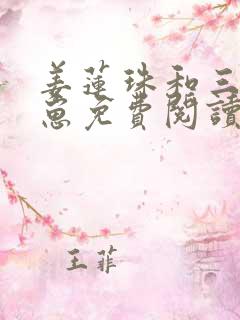 姜蓮珠和三
崽免費閱讀
王菲